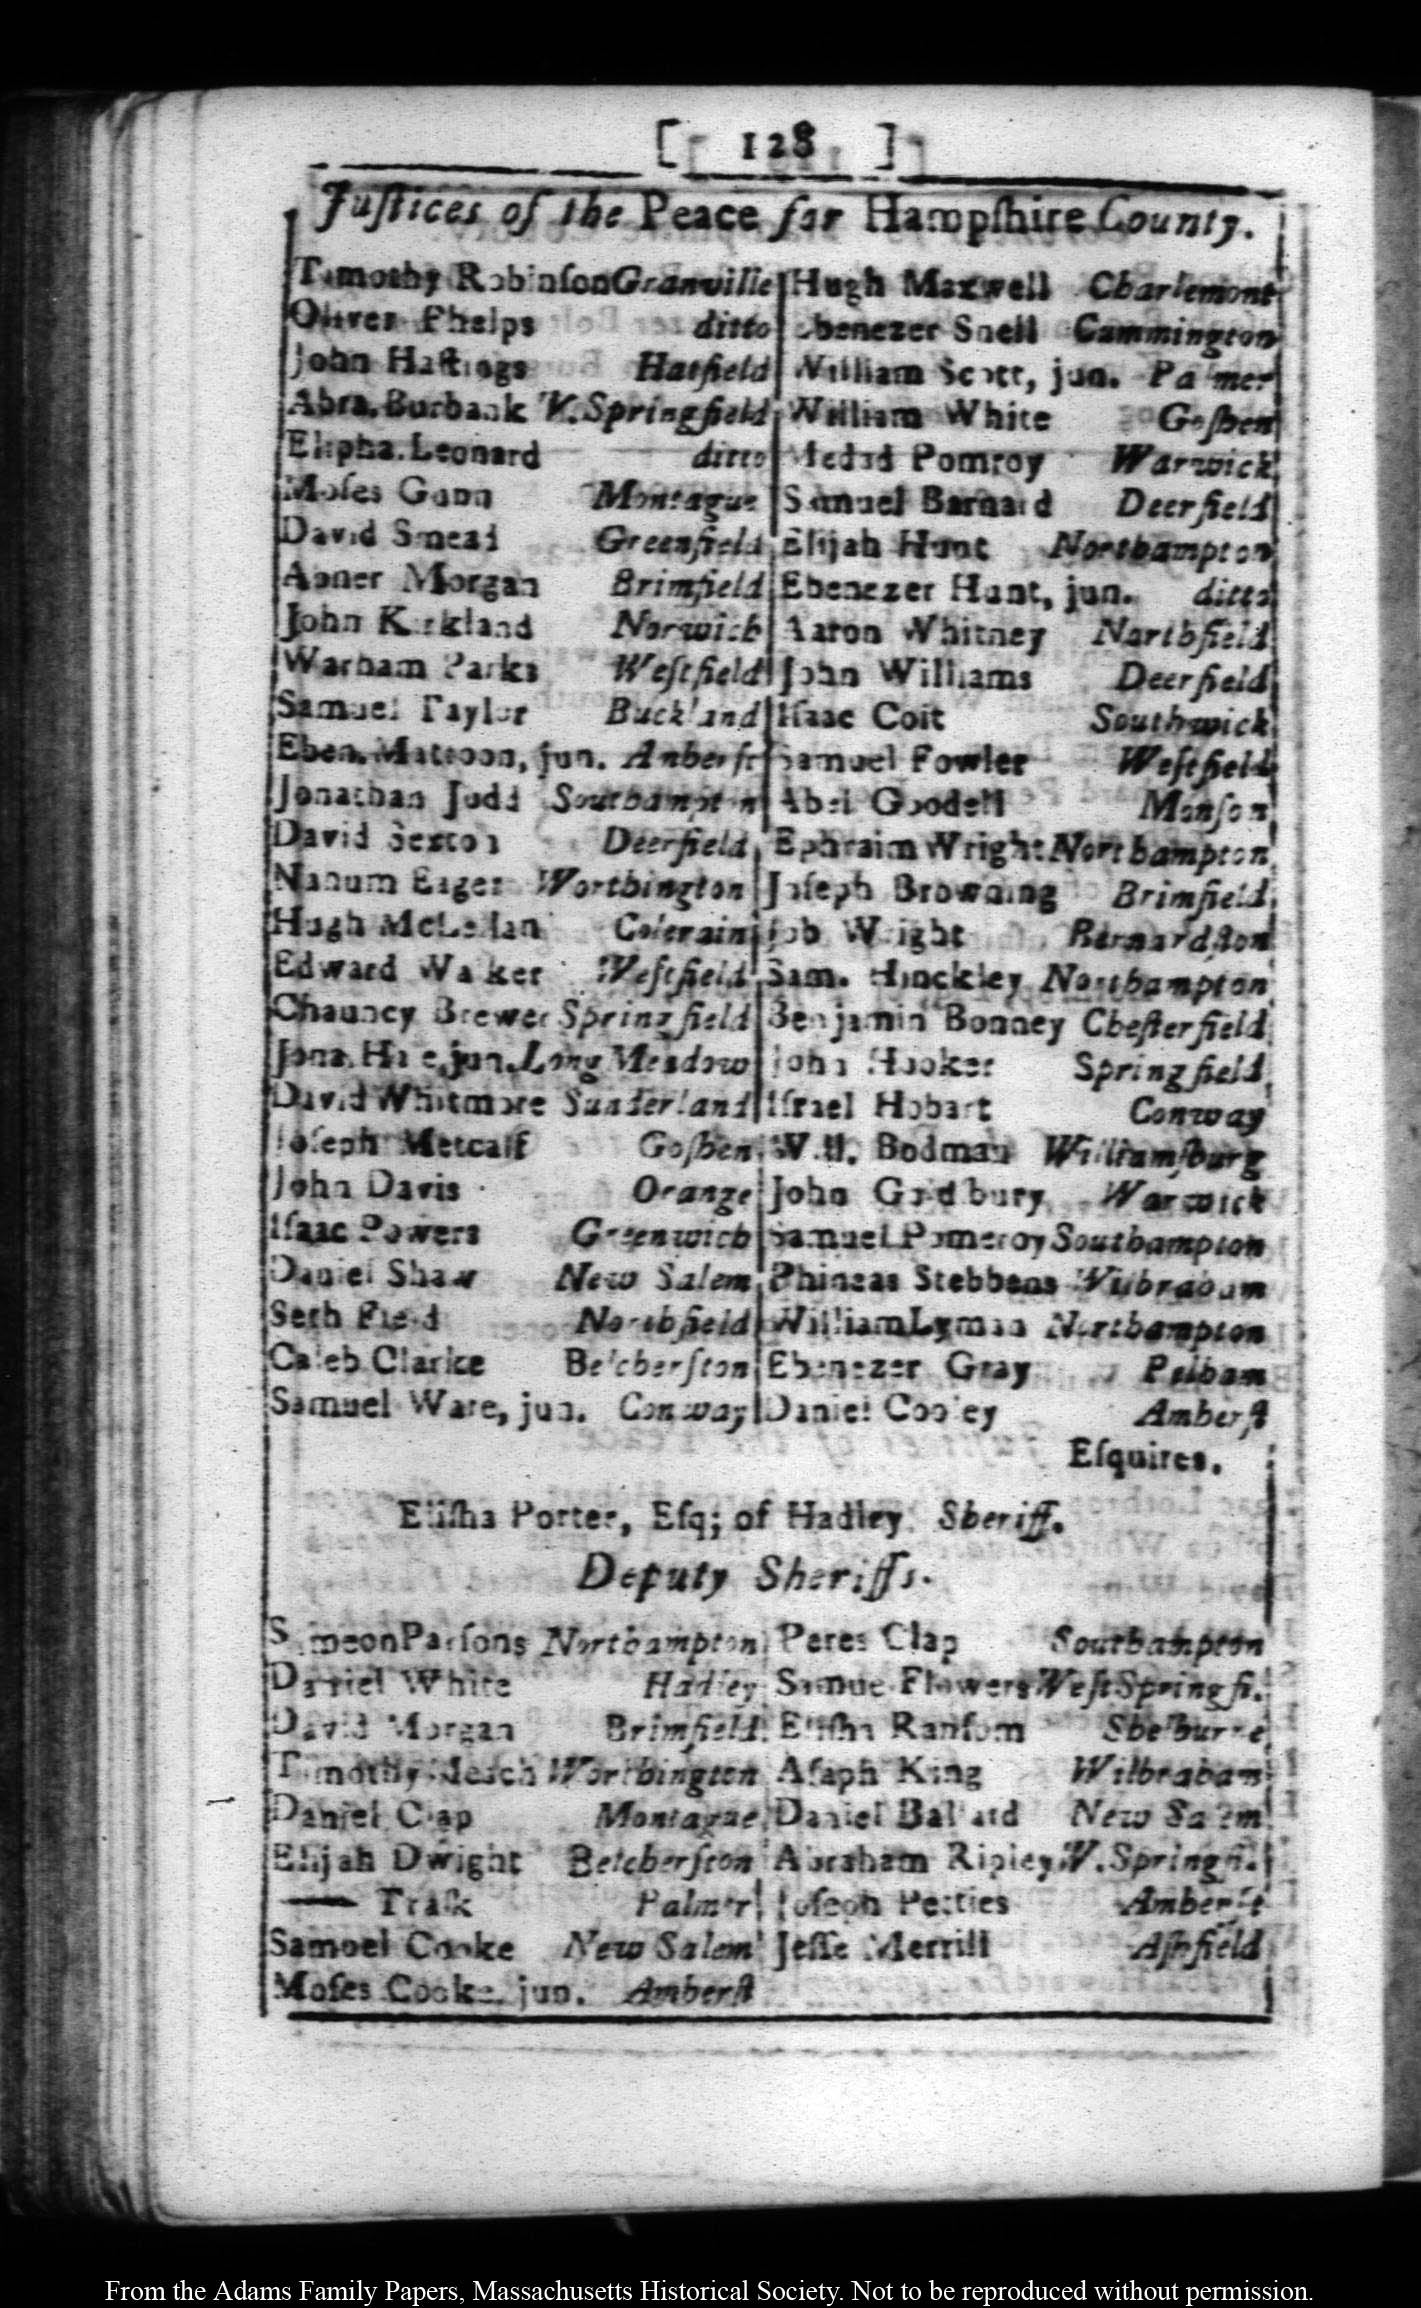 [ 128 ]
Juſtices of the Peace for Hampſhire County.
Timothy Robinſon Granville
Oliver Phelps ditto
John Haſtings Hatfield
Abra. Burbank W. Springfield
Elipha. Leonard ditto
Moſes Gunn Montague
David Smead Greenfield
Abner Morgan Brimfield
John Kirkland Norwich
Warham Parks Weſtfield
Samuel Taylor Buckland
Eben. Mattoon, jun. Amherſt
Jonathan Judd Southampton
David Sexton Deerfield
Nahum Eager Worthington
Hugh McLellan Colerain
Edward Walker Weſtfield
Chauncy Brewer Springfield
Jona. Hale, jun. Long Meadow
David Whitmore Sunderland
Joſeph Metcalf Goſhen
John Davis Orange
Iſaac Powers Greenwich
Daniel Shaw New Salem
Seth Field Northfield
Caleb Clarke Belcherſton
Samuel Ware, jun. Conway
Hugh Maxwell Charlemont
Ebenezer Snell Cummington
William Scott, jun. Palmer
William White Goſhen
Medad Pomroy Warwick
Samuel Barnard Deerfield
Elijah Hunt Northampton
Ebenezer Hunt, jun. ditto
Aaron Whitney Northfield
John Williams Deerfield
Iſaac Coit Southwick
Samuel Fowler Weſtfield
Abel Goodell Monſon
Ephraim Wright Northampton
Joſeph Browning Brimfield
Job Wright Bernardſton
Sam. Hinckley Northampton
Benjamin Bonney Cheſterfield
John Hooker Springfield
Iſrael Hobart Conway
Will. Bodman Williamſburg
John Goldſbury Warwick
Samuel Pomeroy Southampton
Phineas Stebbens Wilbraham
William Lyman Northampton
Ebenezer Gray Pelham
Daniel Cooley Amherſt
Eſquires.
Eliſha Porter, Eſq; of Hadley Sheriff.
Deputy Sheriffs.
Simeon Parſons Northampton
Daniel White Hadley
David Morgan Brimfield
Timothy Meach Worthington
Daniel Clap Montague
Elijah Dwight Belcherſton
—— Traſk Palmer
Samuel Cooke New Salem
Moſes Cooke, jun. Amherſt
Peres Clap Southampton
Samuel Flowers Weſt Springfi.
Eliſha Ranſom Shelburne
Aſaph King Wilbraham
Daniel Ballard New Salem
Abraham Ripley W. Springfi.
Joſeph Petties Amherſt
Jeſſe Merrill Aſhfield
From the Adams Family Papers, Massachusetts Historical Society. Not to be reproduced without permission.